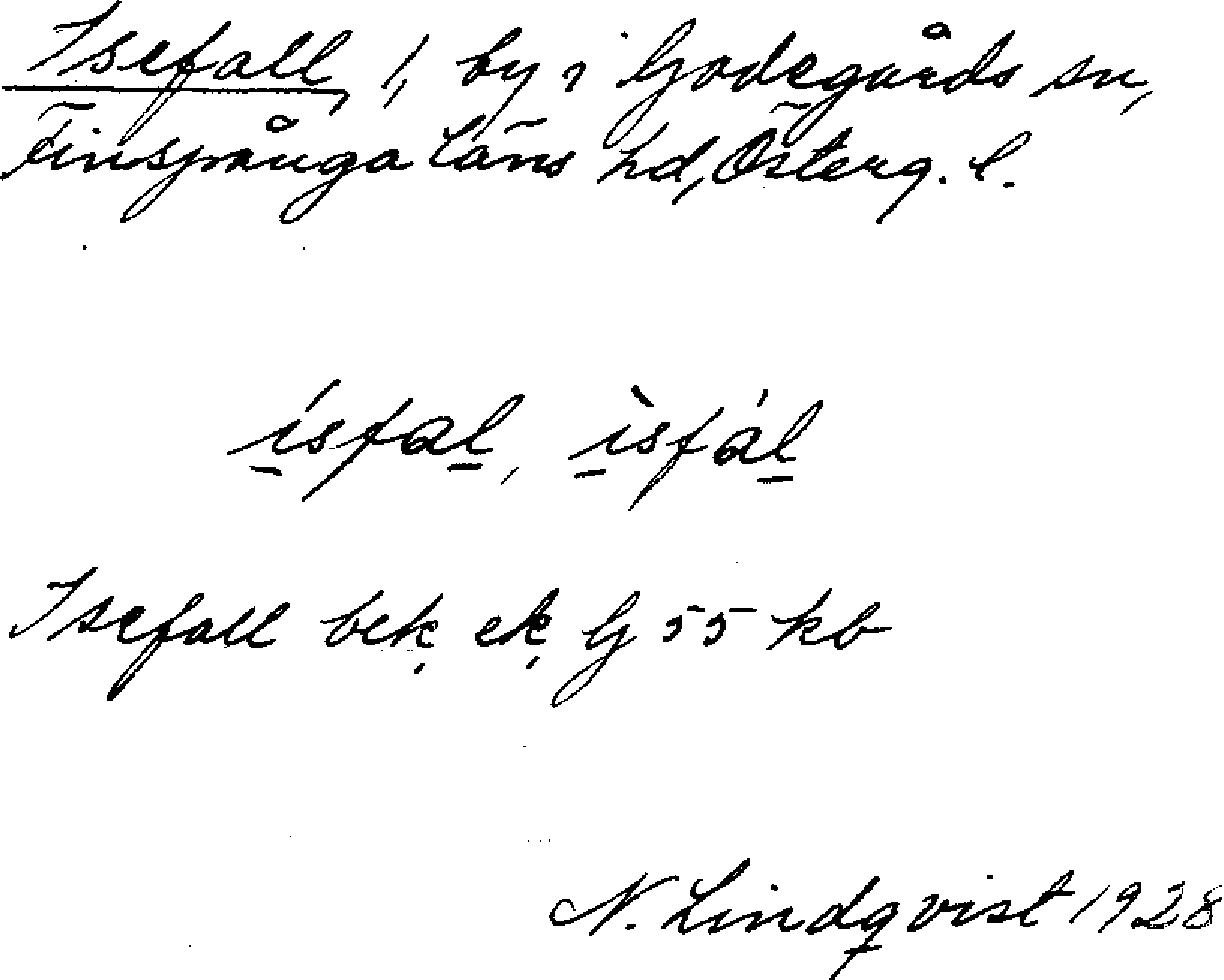 Isefall, 1, by i Godegårds sn,
Finspånga läns hd, Österg. l.
ísfal, ìsfál
Isefall bek, ek, G 55 kb
N. Lindqvist 1928